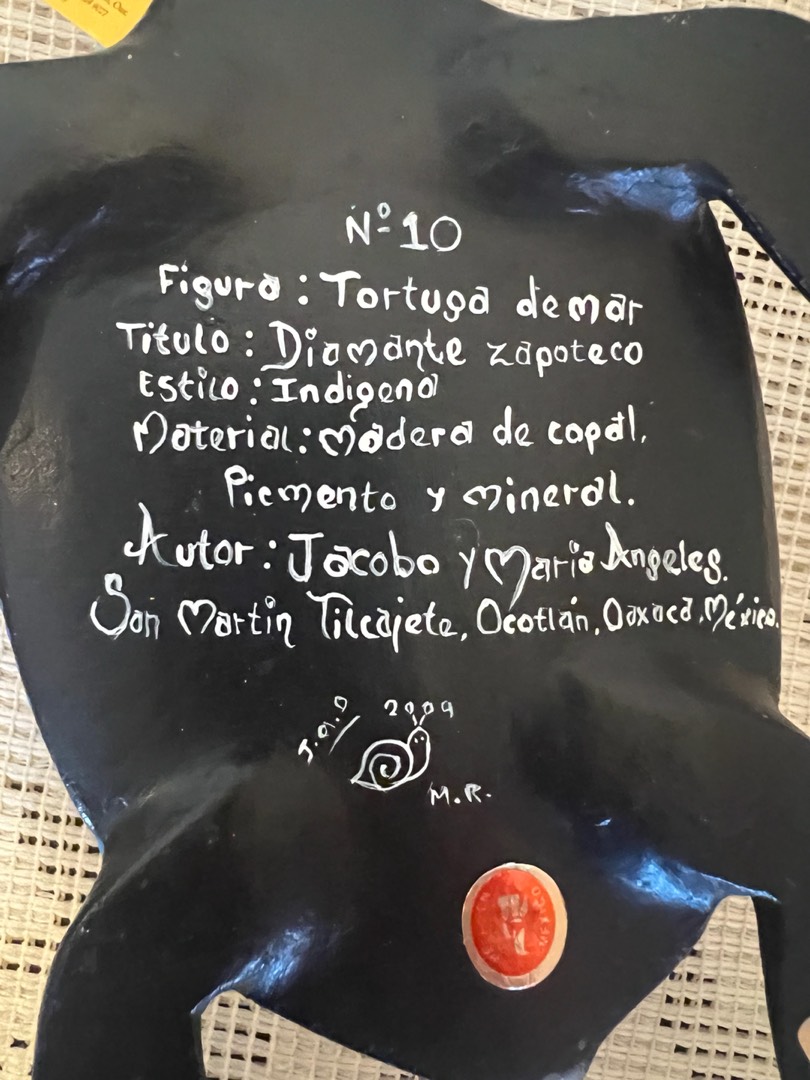 Nº 10
Figura : Tortuga de mar
Titulo : Diamante zapoteco
Estilo : Indigena
Material : madera de copal,
Picmento y mineral.
Autor : Jacobo y Maria Angeles.
San Martin Tilcajete, Ocotlán, Oaxaca, México.
J.a.O / 2009
M.R.